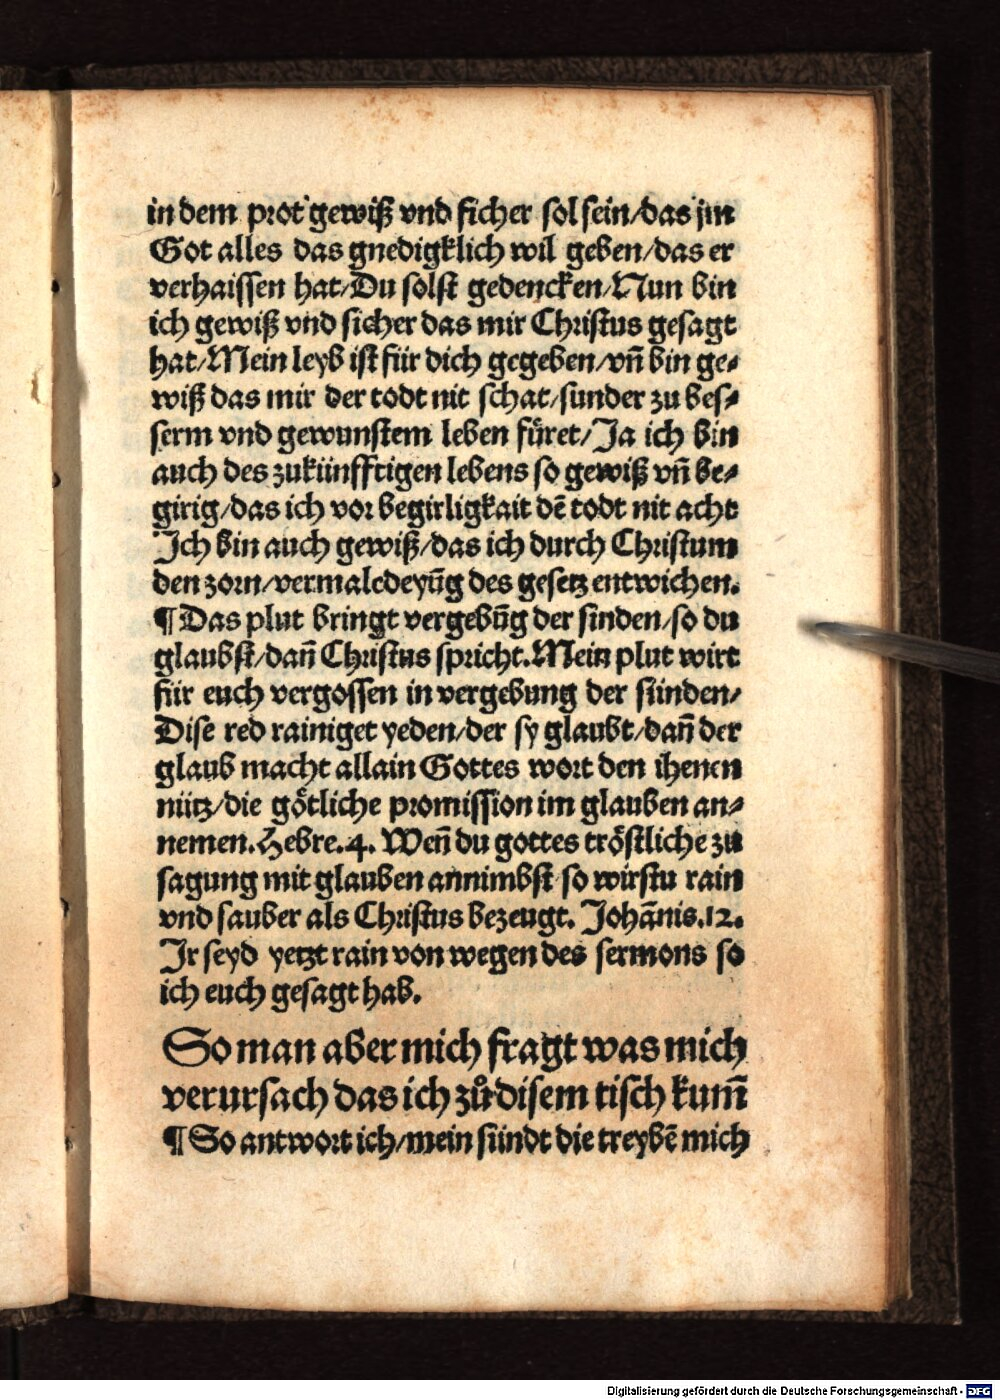 in dem prot gewiß vnd sicher sol sein/das jm
Got alles das gnedigklich wil geben/das er
verhaissen hat/Du solst gedencken/Nun bin
ich gewiß vnd sicher das mir Christus gesagt
hat/Mein leyb ist für dich gegeben/vn̄ bin ge⸗
wiß das mir der todt nit schat/sunder zu bes⸗
serm vnd gewunstem leben füret/Ja ich bin
auch des zukünfftigen lebens so gewiß vn̄ be⸗
girig/das ich vor begirligkait dē todt nit acht
Ich bin auch gewiß/das ich durch Christum
den zorn/vermaledeyūg des gesetz entwichen.
¶Das plut bringt vergebūg der sinden/so du
glaubst/dan̄ Christus spricht.Mein plut wirt
für euch vergossen in vergebung der sünden/
Dise red rainiget yeden/der sy glaubt/dan̄ der
glaub macht allain Gottes wort den ihenen
nütz/die götliche promission im glauben an⸗
nemen.Hebre.4. Wen̄ du gottes tröstliche zu
sagung mit glauben annimbst so wirstu rain
vnd sauber als Christus bezeugt. Johānis.12.
Ir seyd yetzt rain von wegen des sermons so
ich euch gesagt hab.
So man aber mich fragt was mich
verursach das ich zů disem tisch kum̄
¶So antwort ich/mein sündt die treybē mich
Digitalisierung gefördert durch die Deutsche Forschungsgemeinschaft - DFG